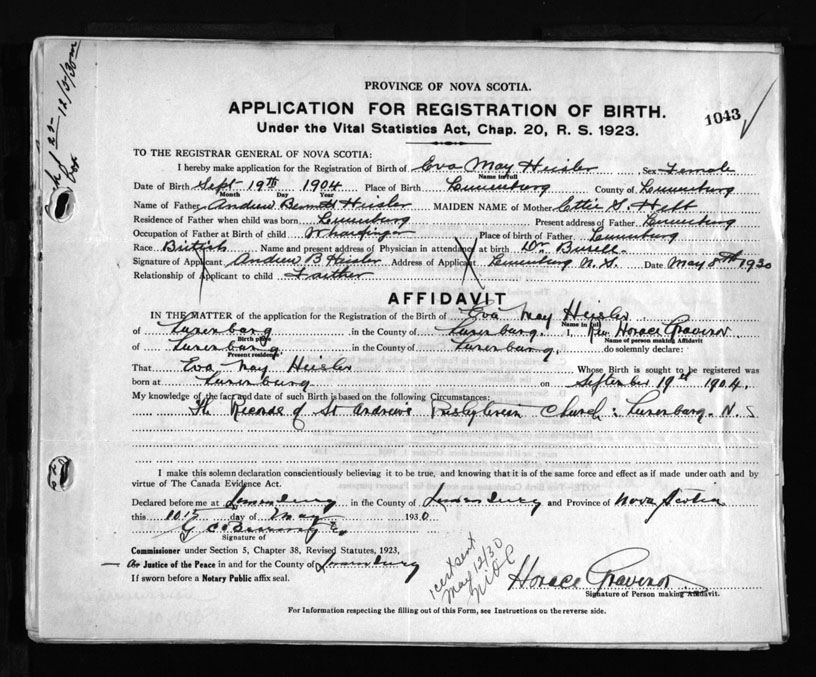 PROVINCE OF NOVA SCOTIA.
APPLICATION FOR REGISTRATION OF BIRTH.
1043
Under the Vital Statistics Act, Chap. 20, R. S. 1923.
12/5/30
TO THE REGISTRAR GENERAL OF NOVA SCOTIA:
I hereby make application for the Registration of Birth of Eva May Heisler Sex Female
Name in full
Date of Birth Sept 19th 1904 Place of Birth Lunenburg County of Lunenburg
Month Day Year
Name of Father Andrew Heisler MAIDEN NAME of Mother Ettie S. Hebb
Residence of Father when child was born Lunenburg Present address of Father Lunenburg
Occupation of Father at Birth of child Wharfinger Place of birth of Father Lunenburg
Race British Name and present address of Physician in attendance at birth Dr Burell
Signature of Applicant Andrew B Heisler Address of Applicant Lunenburg N.S. Date May 5th 1930
Relationship of Applicant to child Faither
AFFIDAVIT
IN THE MATTER of the application for the Registration of the Birth of Eva May Heisler
Name in full
of Lunenburg in the County of Lunenburg. I, Rev. Horace Gravenor
Birth place Name of person making Affidavit
of Lunenburg in the County of Lunenburg. do solemnly declare:
Present residence
That Eva May Heisler Whose Birth is sought to be registered was
born at Lunenburg on September 19th 1904.
My knowledge of the fact and date of such Birth is based on the following Circumstances:
The Records of St Andrew's Presbyterian Church: Lunenburg. N. S
I make this solemn declaration conscientiously believing it to be true, and knowing that it is of the same force and effect as if made under oath and by
virtue of The Canada Evidence Act.
Declared before me at Lunenburg in the County of Lunenburg and Province of Nova Scotia
this 10th day of May 1930
Signature of
Commissioner under Section 5, Chapter 38, Revised Statutes, 1923,
Or Justice of the Peace in and for the County of Lunenburg
If sworn before a Notary Public affix seal.
1 cert sent
May 12/30
Horace Gravenor
Signature of Person making Affidavit.
For Information respecting the filling out of this Form, see Instructions on the reverse side.